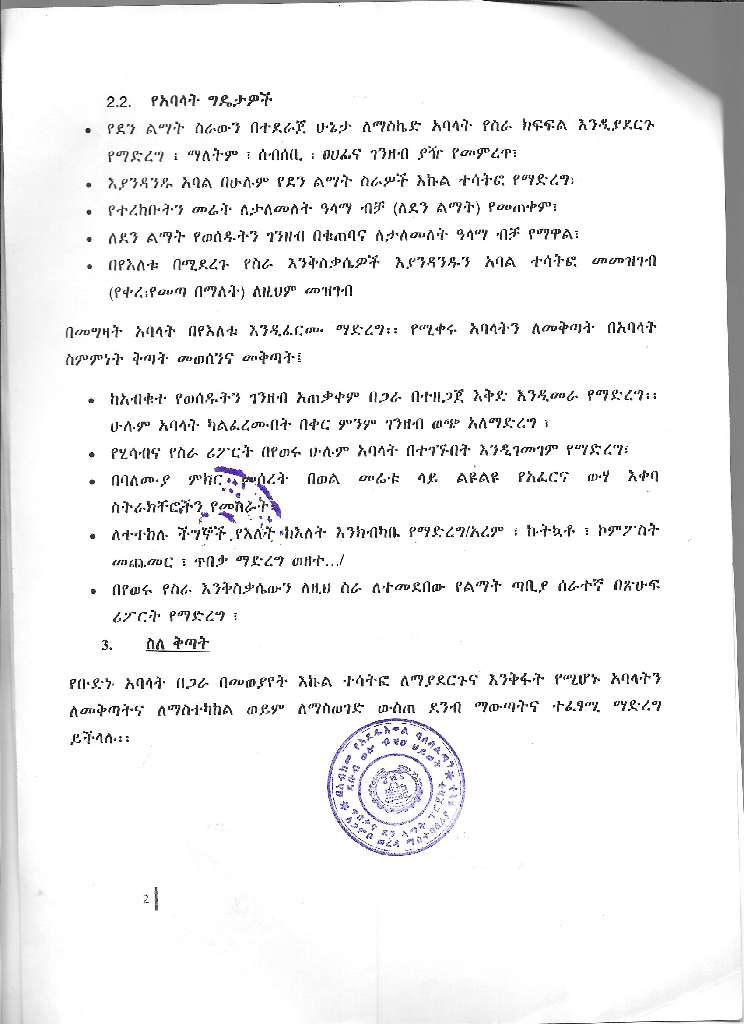 2.2. የአባላት ግዴታዎች
• የደን ልማት ስራውን በተደራጀ ሁኔታ ለማስኬድ አባላት የስራ ክፍፍል እንዲያደርጉ
የማድረግ ፤ ማለትም ፣ ሰብሰቢ ፣ ፀሀፊና ገንዘብ ያዥ የመምረጥ፣
• እያንዳንዱ አባል በሁሉም የደን ልማት ስራዎች እኩል ተሳትፎ የማድረግ፣
• የተረከቡትን መሬት ለታለመለት ዓላማ ብቻ (ለደን ልማት) የመጠቀም፣
• ለደን ልማት የወሰዱትን ገንዘብ በቁጠባና ለታለመለት ዓላማ ብቻ የማዋል፣
• በየእለቱ በሚደረጉ የስራ እንቅስቃሴዎች እያንዳንዱን አባል ተሳትፎ መመዝገብ
(የቀረ፣የመጣ በማለት) ለዚህም መዝገብ
በመግዛት አባላት በየእለቱ እንዲፈርሙ ማድረግ፡፡ የሚቀሩ አባላትን ለመቅጣት በአባላት
ስምምነት ቅጣት መወሰንና መቅጣት፤
• ከአብቁተ የወሰዱትን ገንዘብ አጠቃቀም በጋራ በተዘጋጀ እቅድ እንዲመራ የማድረግ፡፡
ሁሉም አባላት ካልፈረሙበት በቀር ምንም ገንዘብ ወጭ አለማድረግ ፣
• የሂሳብና የስራ ሪፖርት በየወሩ ሁሉም አባላት በተገኙበት እንዲገመገም የማድረግ፣
• በባለሙያ ምክር መሰረት በወል መሬቱ ላይ ልዩልዩ የአፈርና ውሃ እቀባ
ስትራክቸሮችን የመስራት፣
• ለተተከሉ ችግኞች የእለት ከእለት እንክብካቤ የማድረግ/አረም ፣ ኩትኳቶ ፣ ኮምፖስት
መጨመር ፣ ጥበቃ ማድረግ ወዘተ.../
• በየወሩ የስራ እንቅስቃሴውን ለዚህ ስራ ለተመደበው የልማት ጣቢያ ሰራተኛ በጽሁፍ
ሪፖርት የማድረግ ፣
3. ስለ ቅጣት
የቡድኑ አባላት በጋራ በመወያየት እኩል ተሳትፎ ለማያደርጉና እንቅፋት የሚሆኑ አባላትን
ለመቅጣትና ለማስተካከል ወይም ለማስወገድ ውስጠ ደንብ ማውጣትና ተፈፃሚ ማድረግ
ይችላሉ፡፡
2